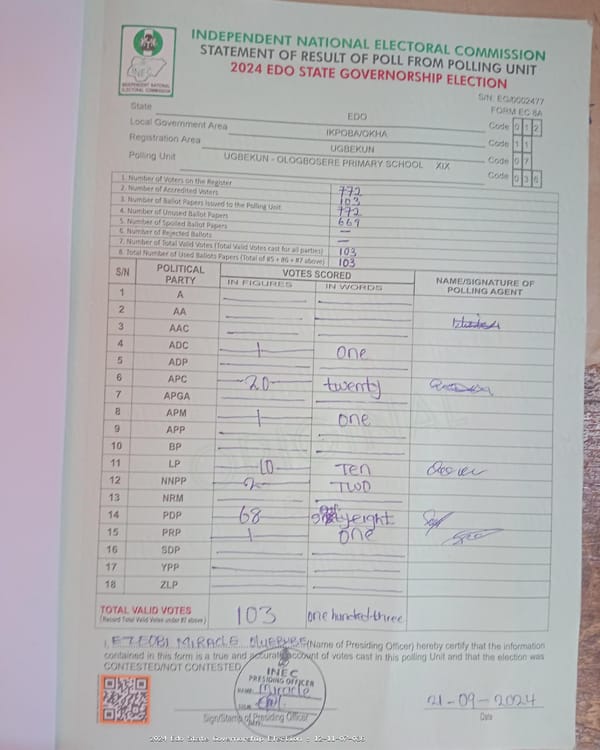 INEC
INDEPENDENT NATIONAL ELECTORAL COMMISSION
INDEPENDENT NATIONAL ELECTORAL COMMISSION
STATEMENT OF RESULT OF POLL FROM POLLING UNIT
2024 EDO STATE GOVERNORSHIP ELECTION
S/N: EG/0002477
FORM EC 8A
State EDO Code 0 1 2
Local Government Area IKPOBA/OKHA Code 1 1
Registration Area UGBEKUN Code 0 7
Polling Unit UGBEKUN - OLOGBOSERE PRIMARY SCHOOL XIX Code 0 3 6
1. Number of Voters on the Register 772
2. Number of Accredited Voters 103
3. Number of Ballot Papers Issued to the Polling Unit 772
4. Number of Unused Ballot Papers 669
5. Number of Spoiled Ballot Papers —
6. Number of Rejected Ballots —
7. Number of Total Valid Votes (Total Valid Votes cast for all parties) 103
8. Total Number of Used Ballot Papers (Total of #5 + #6 + #7 above) 103
S/N POLITICAL PARTY VOTES SCORED NAME/SIGNATURE OF POLLING AGENT
IN FIGURES IN WORDS
1 A
2 AA
3 AAC
4 ADC 1 one
5 ADP
6 APC 20 twenty
7 APGA
8 APM 1 one
9 APP
10 BP
11 LP 10 TEN
12 NNPP 2 TWO
13 NRM
14 PDP 68 eight
15 PRP 1 one
16 SDP
17 YPP
18 ZLP
TOTAL VALID VOTES 103 one hundred-three
(Record Total Valid Votes under #7 above)
I, EZEOBI MIRACLE (Name of Presiding Officer) hereby certify that the information
contained in this form is a true and accurate account of votes cast in this polling Unit and that the election was
CONTESTED/NOT CONTESTED.
INEC
PRESIDING OFFICER
NAME: Miracle
SIGN
21-09-2024
Sign/Stamp of Presiding Officer Date
2024 Edo State Governorship Election : 12-11-07-036